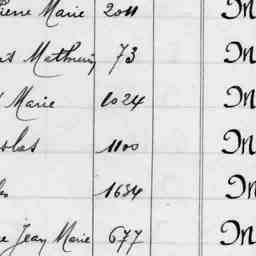 Pierre Marie 2011 In
Mathurin 73 In
Marie 1024 In
olas 1100 In
1634 In
Jean Marie 677 In